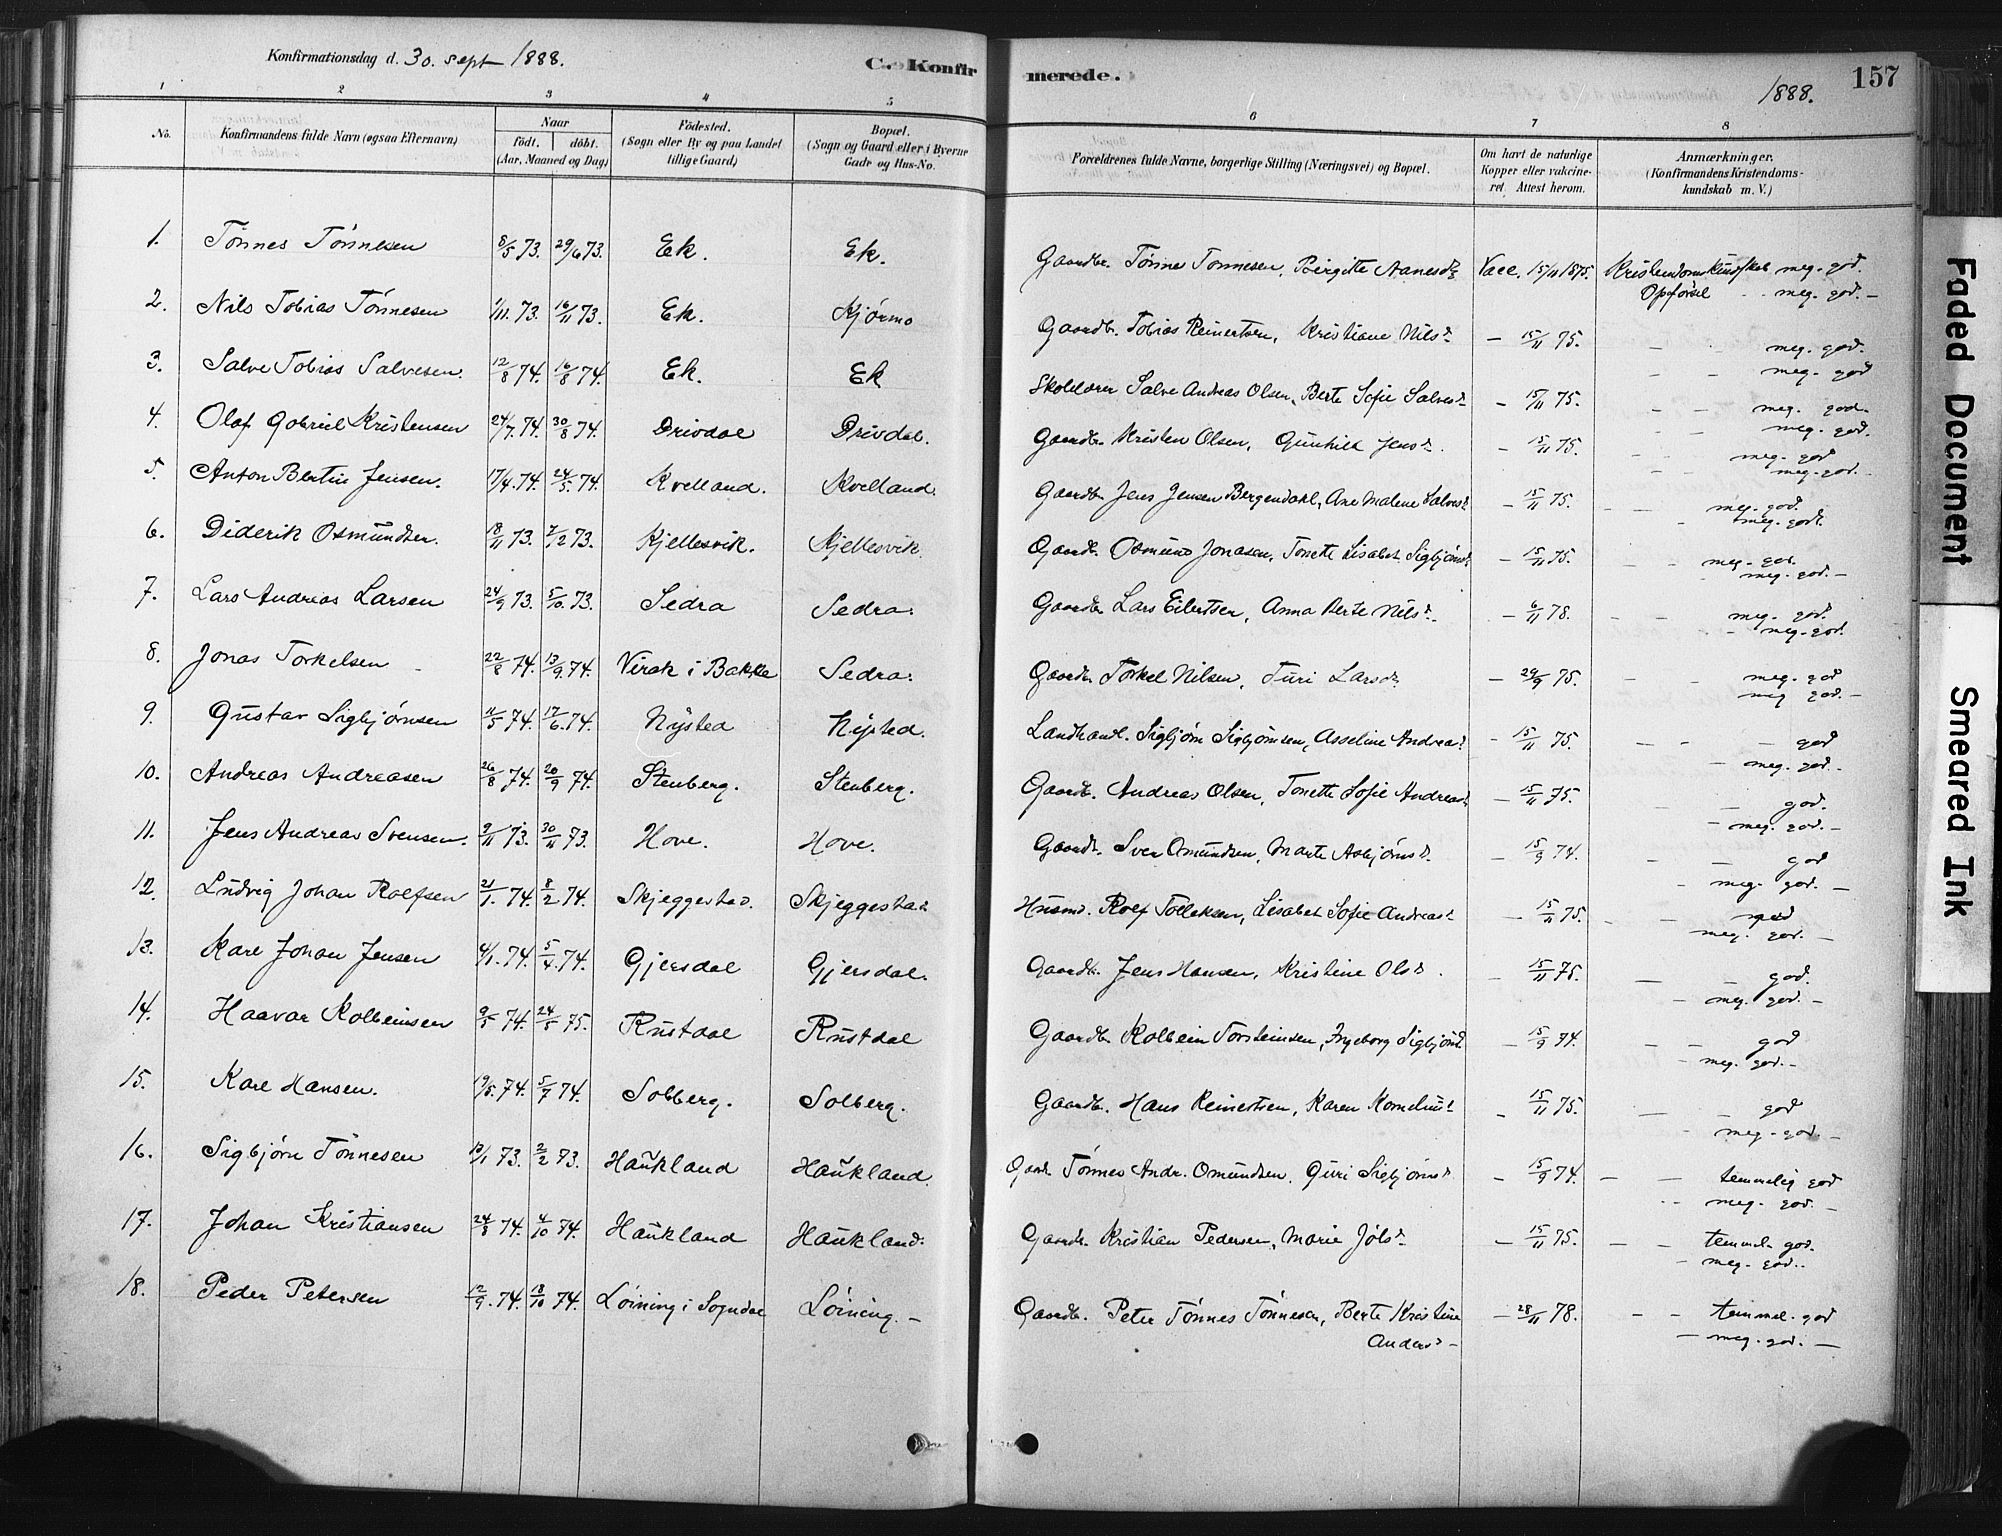 Konfirmationsdag d. 30. sept 1888. C. Konfirmerede. 1888. 157
1 2 3 4 5 6 7 8
No. Konfirmandens fulde Navn (ogsaa Efternavn) Naar født. døbt. (Aar, Maaned og Dag) Fødested. (Sogn eller By og paa Landet tillige Gaard) Bopæl. (Sogn og Gaard eller i Byerne Gade og Hus-No. Forældrenes fulde Navne, borgerlige Stilling (Næringsvei) og Bopæl. Om havt de naturlige Kopper eller vakcineret. Attest herom. Anmærkninger. (Konfirmandens Kristendomskundskab m. V.)
1. Tönnes Tönnesen 8/5 73. 29/6 73. Ek. Ek. Gaardbr. Tönnes Tonnesen, Birgitte Aanesdt Vacc. 15/11 1875. Kristendomskundskab meg. god.
Opförsel - - meg. god. -
2. Nils Tobias Tönnesen 1/11. 73. 16/11 73. Ek. Kjörmo Gaardb. Tobias Reinertsen, Kristiane Nilsd. - 15/11 75. - - meg. god.
- - meg. god
3. Salve Tobias Salvesen. 12/8 74. 16/8 74. Ek. Ek Skolelærer Salve Andreas Olsen, Berte Sofie Salvesd. - 15/11 75. - - meg. god.
- - meg. god.
4. Olaf Gabriel Kristensen 24/7. 74. 30/8 74. Drivdal Drivdal. Gaardb. Kristen Olsen, Gunhild Jensd. - 15/11 75. - - meg. god
- - meg. god.
5. Anton Bertin Jensen. 17/4. 74. 24/5. 74. Kvelland. Kvelland. Gaardb. Jens Jensen Bergendahl, Ane Malene Salvesd. - 15/11 75. - - meg. god.
- meg. godt.
6. Diderik Osmundsen. 18/11 73. 7/12 73. Kjellesvik. Kjellesvik. Gaardb. Osmund Jonasen, Tonette Lisabet Sigbjörnsd. - 15/11 75. - - meg. god.
- meg. god. -
7. Lars Andreas Larsen 24/9 73. 5/10. 73. Sedra Sedra. Gaardb. Lars Eilertsen, Anna Berte Nilsd. - 6/11 78. - - meg. god.
- meg. god.
8. Jonas Torkelsen - 22/8 74. 13/9. 74. Virak i Bakke Sedra. Gaardb. Torkel Nilsen, Turi Larsd. - 29/9 75. - - meg. god
meg god. -
9. Gustav Sigbjörnsen 11/5 74. 17/6. 74. Nysted Nysted. Landhandl. Sigbjörn Sigbjörnsen, Asseline Andreasd. - 15/11 75. - - - god
- meg. god.
10. Andreas Andreasen 26/8 74. 20/9 74. Stenberg. Stenberg. Gaardb. Andreas Olsen, Tonette Sofie Andreasd. - 15/11 75. - - god.
- meg. god. -
11. Jens Andreas Svensen. 9/11 73. 30/11 73. Hove. Hove. Gaardb. Sven Omundsen, Marte Asbjörnsd. - 15/9 74. - - god
- meg. god. -
12. Ludvig Johan Rolfsen 21/1. 74. 8/2 74. Skjeggestad. Skjeggestad. Husmd. Rolf Tollaksen, Lisabet Sofie Andreasd. - 15/11 75. - - god
meg. god. -
13. Karl Johan Jensen 4/1. 74. 5/4. 74. Gjersdal Gjersdal. Gaardb. Jens Hansen, Kristine Olsd. - 15/11 75. - - god.
- meg. god. -
14. Haavar Kolbeinsen 9/5 74. 24/5 75. Rustdal Rustdal Gaardb. Kolbein Torsteinsen, Ingeborg Sigbjörnsd. - 15/9 74. - - god
- meg. god. -
15. Karl Hansen. 19/5. 74. 5/7 74. Solberg. Solberg. Gaardb. Hans Reinertsen, Karen Korneliusd. - 15/11 75. - - god
- meg. god. -
16. Sigbjörn Tönnesen 12/1 73. 2/2 73. Haukland Haukland. Gaardb. Tönnes Andr. Omundsen. Guri Sigbjörnsd. - 15/9 74. - - temmelig god
- - meg. god. -
17. Johan Kristiansen 24/8 74. 4/10 74. Haukland Haukland. Gaardb. Kristian Pedersen, Marie Jölsd. - 15/11 75. - - temmel. god.
- meg. god.
18. Peder Petersen 12/9. 74. 18/10 74. Löining i Sogndal Löining. - Gaardb. Peter Tönnes Tönnesen, Berte Kristine - 28/11 78. - - temmel. god
Andersd. - - meg. god. -
Faded Document
Smeared Ink